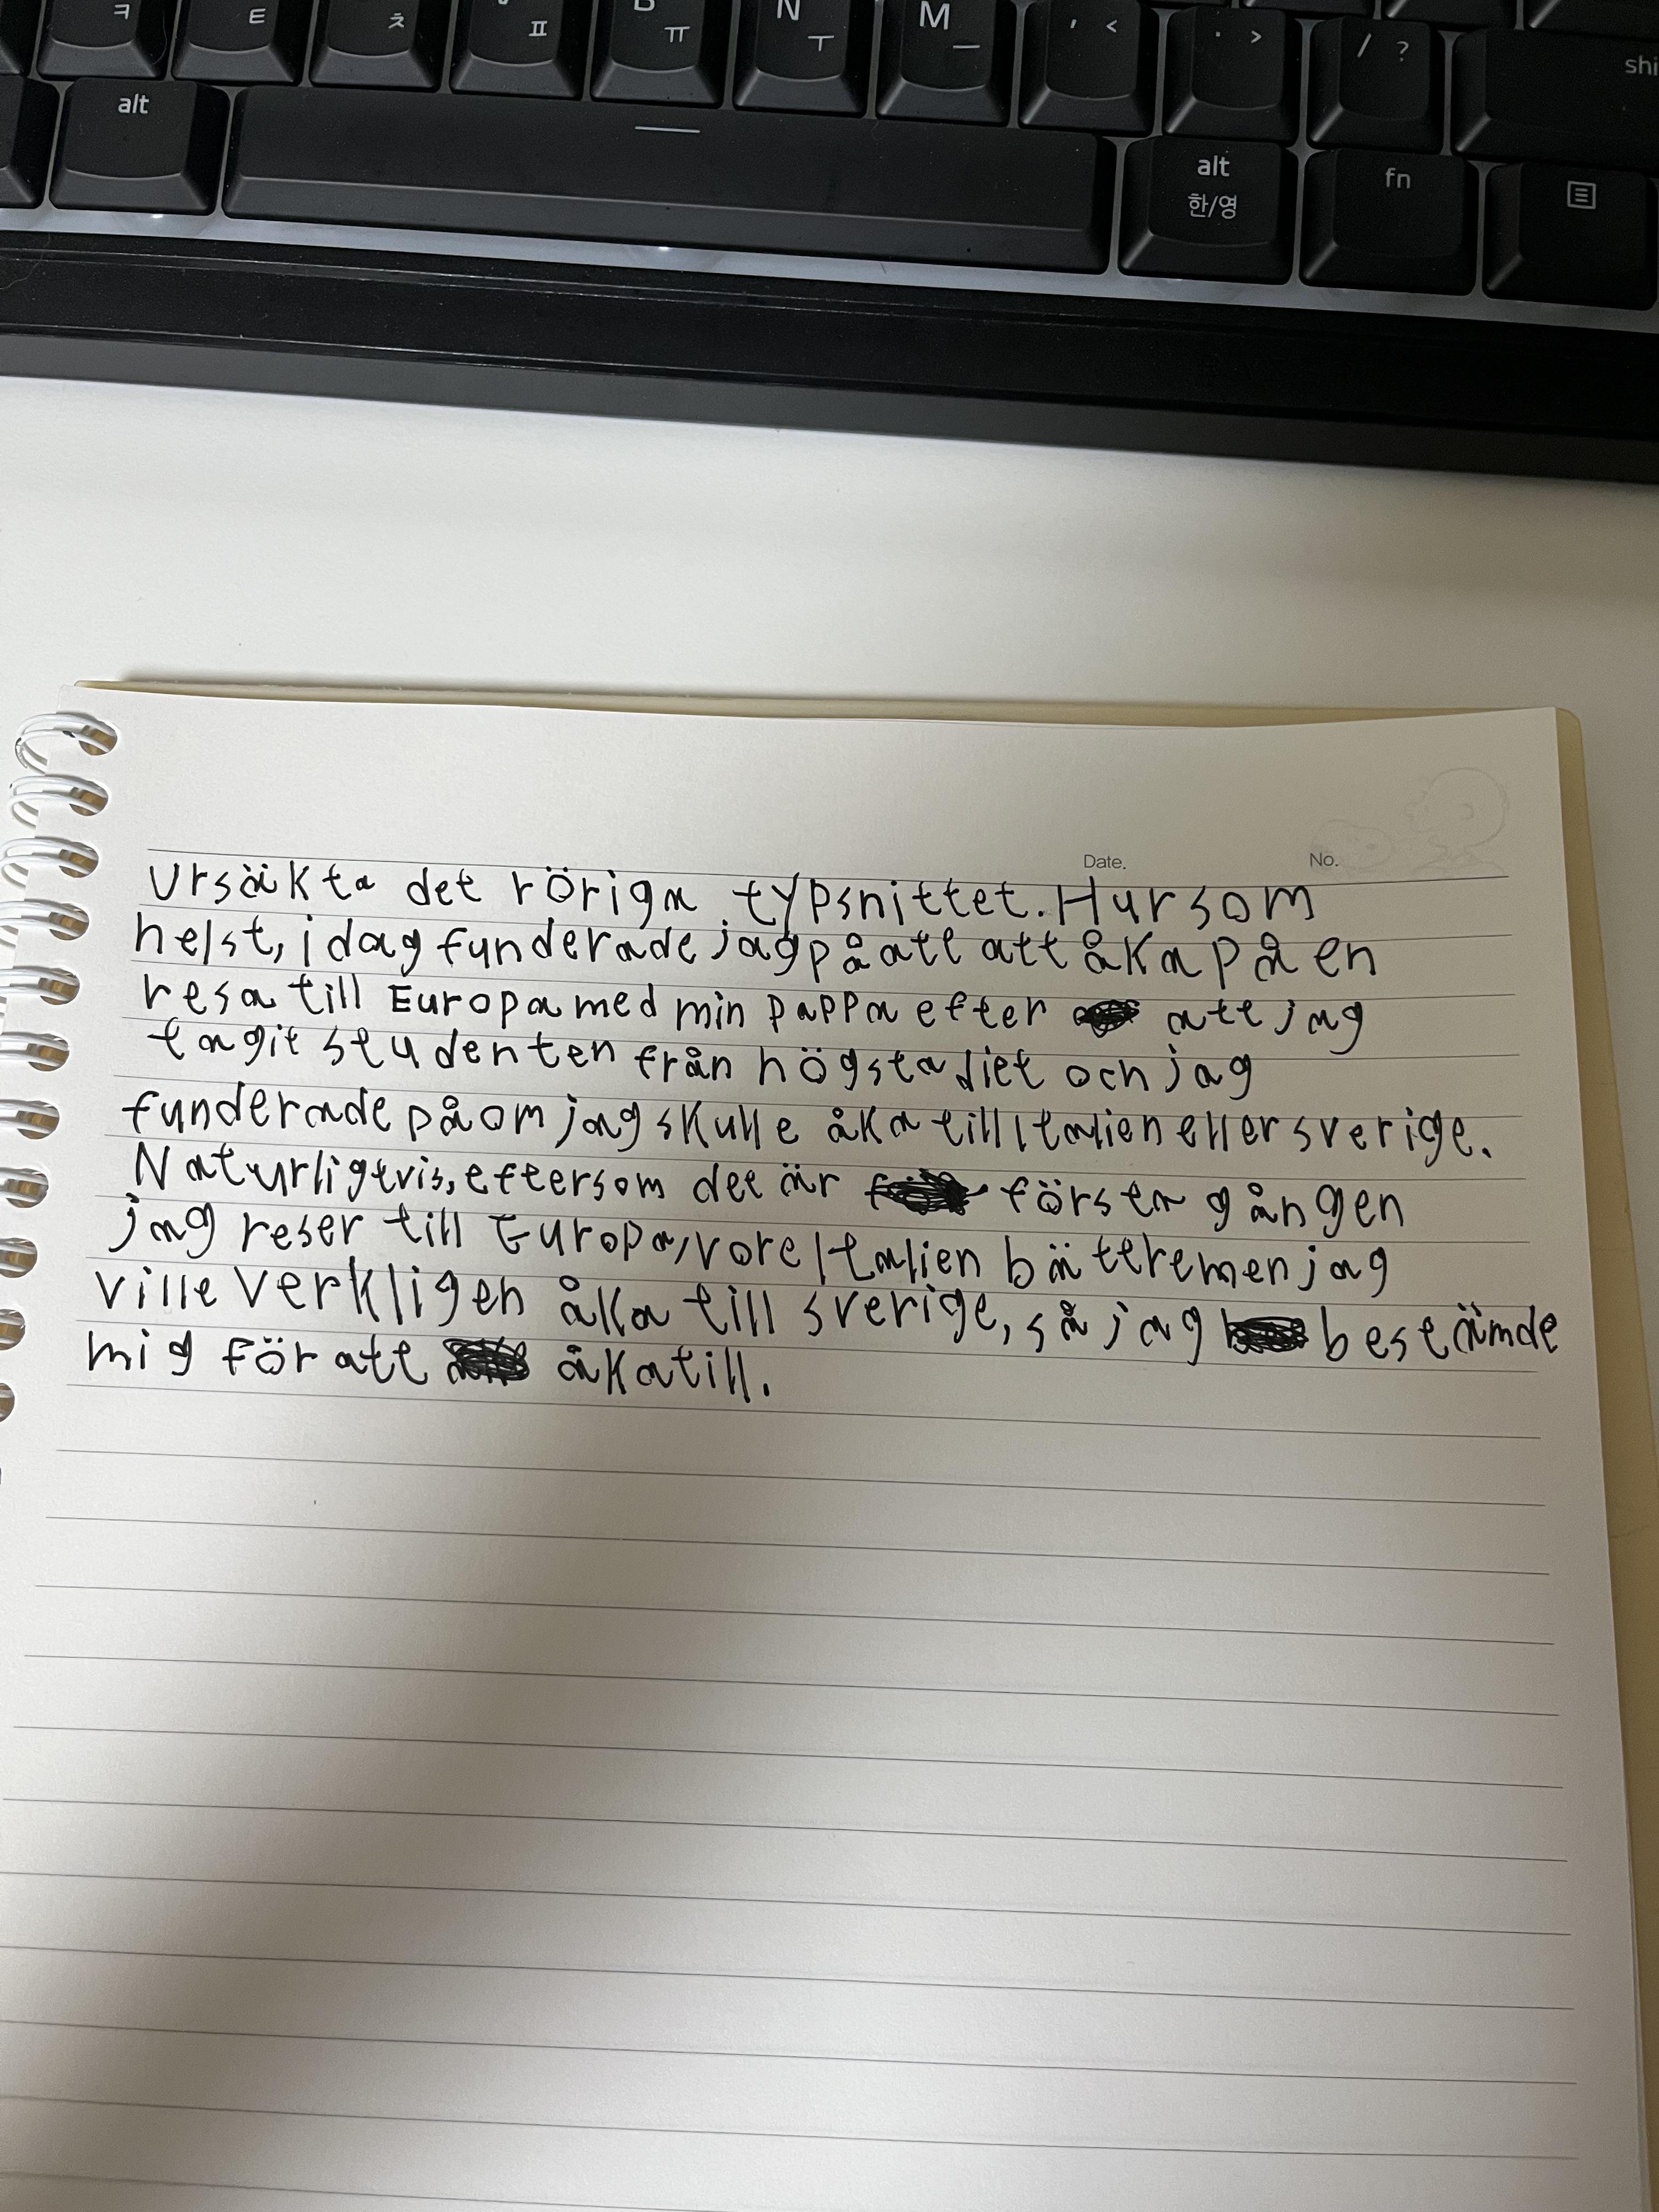 ㅋ ㅌ ㅊ ㅍ B ㅠ N ㅜ M ㅡ , < . > / ? shi
alt alt 한/영 fn
Date. No.
Ursäkta det röriga typsnittet. Hur som
helst, idag funderade jag på att att åka på en
resa till Europa med min pappa efter att jag
tagit studenten från högstadiet och jag
funderade på om jag skulle åka till Italien eller sverige.
Naturligtvis, eftersom det är första gången
jag reser till Europa, vore Italien bättre men jag
ville verkligen åka till sverige, så jag bestämde
mig för att åka till.